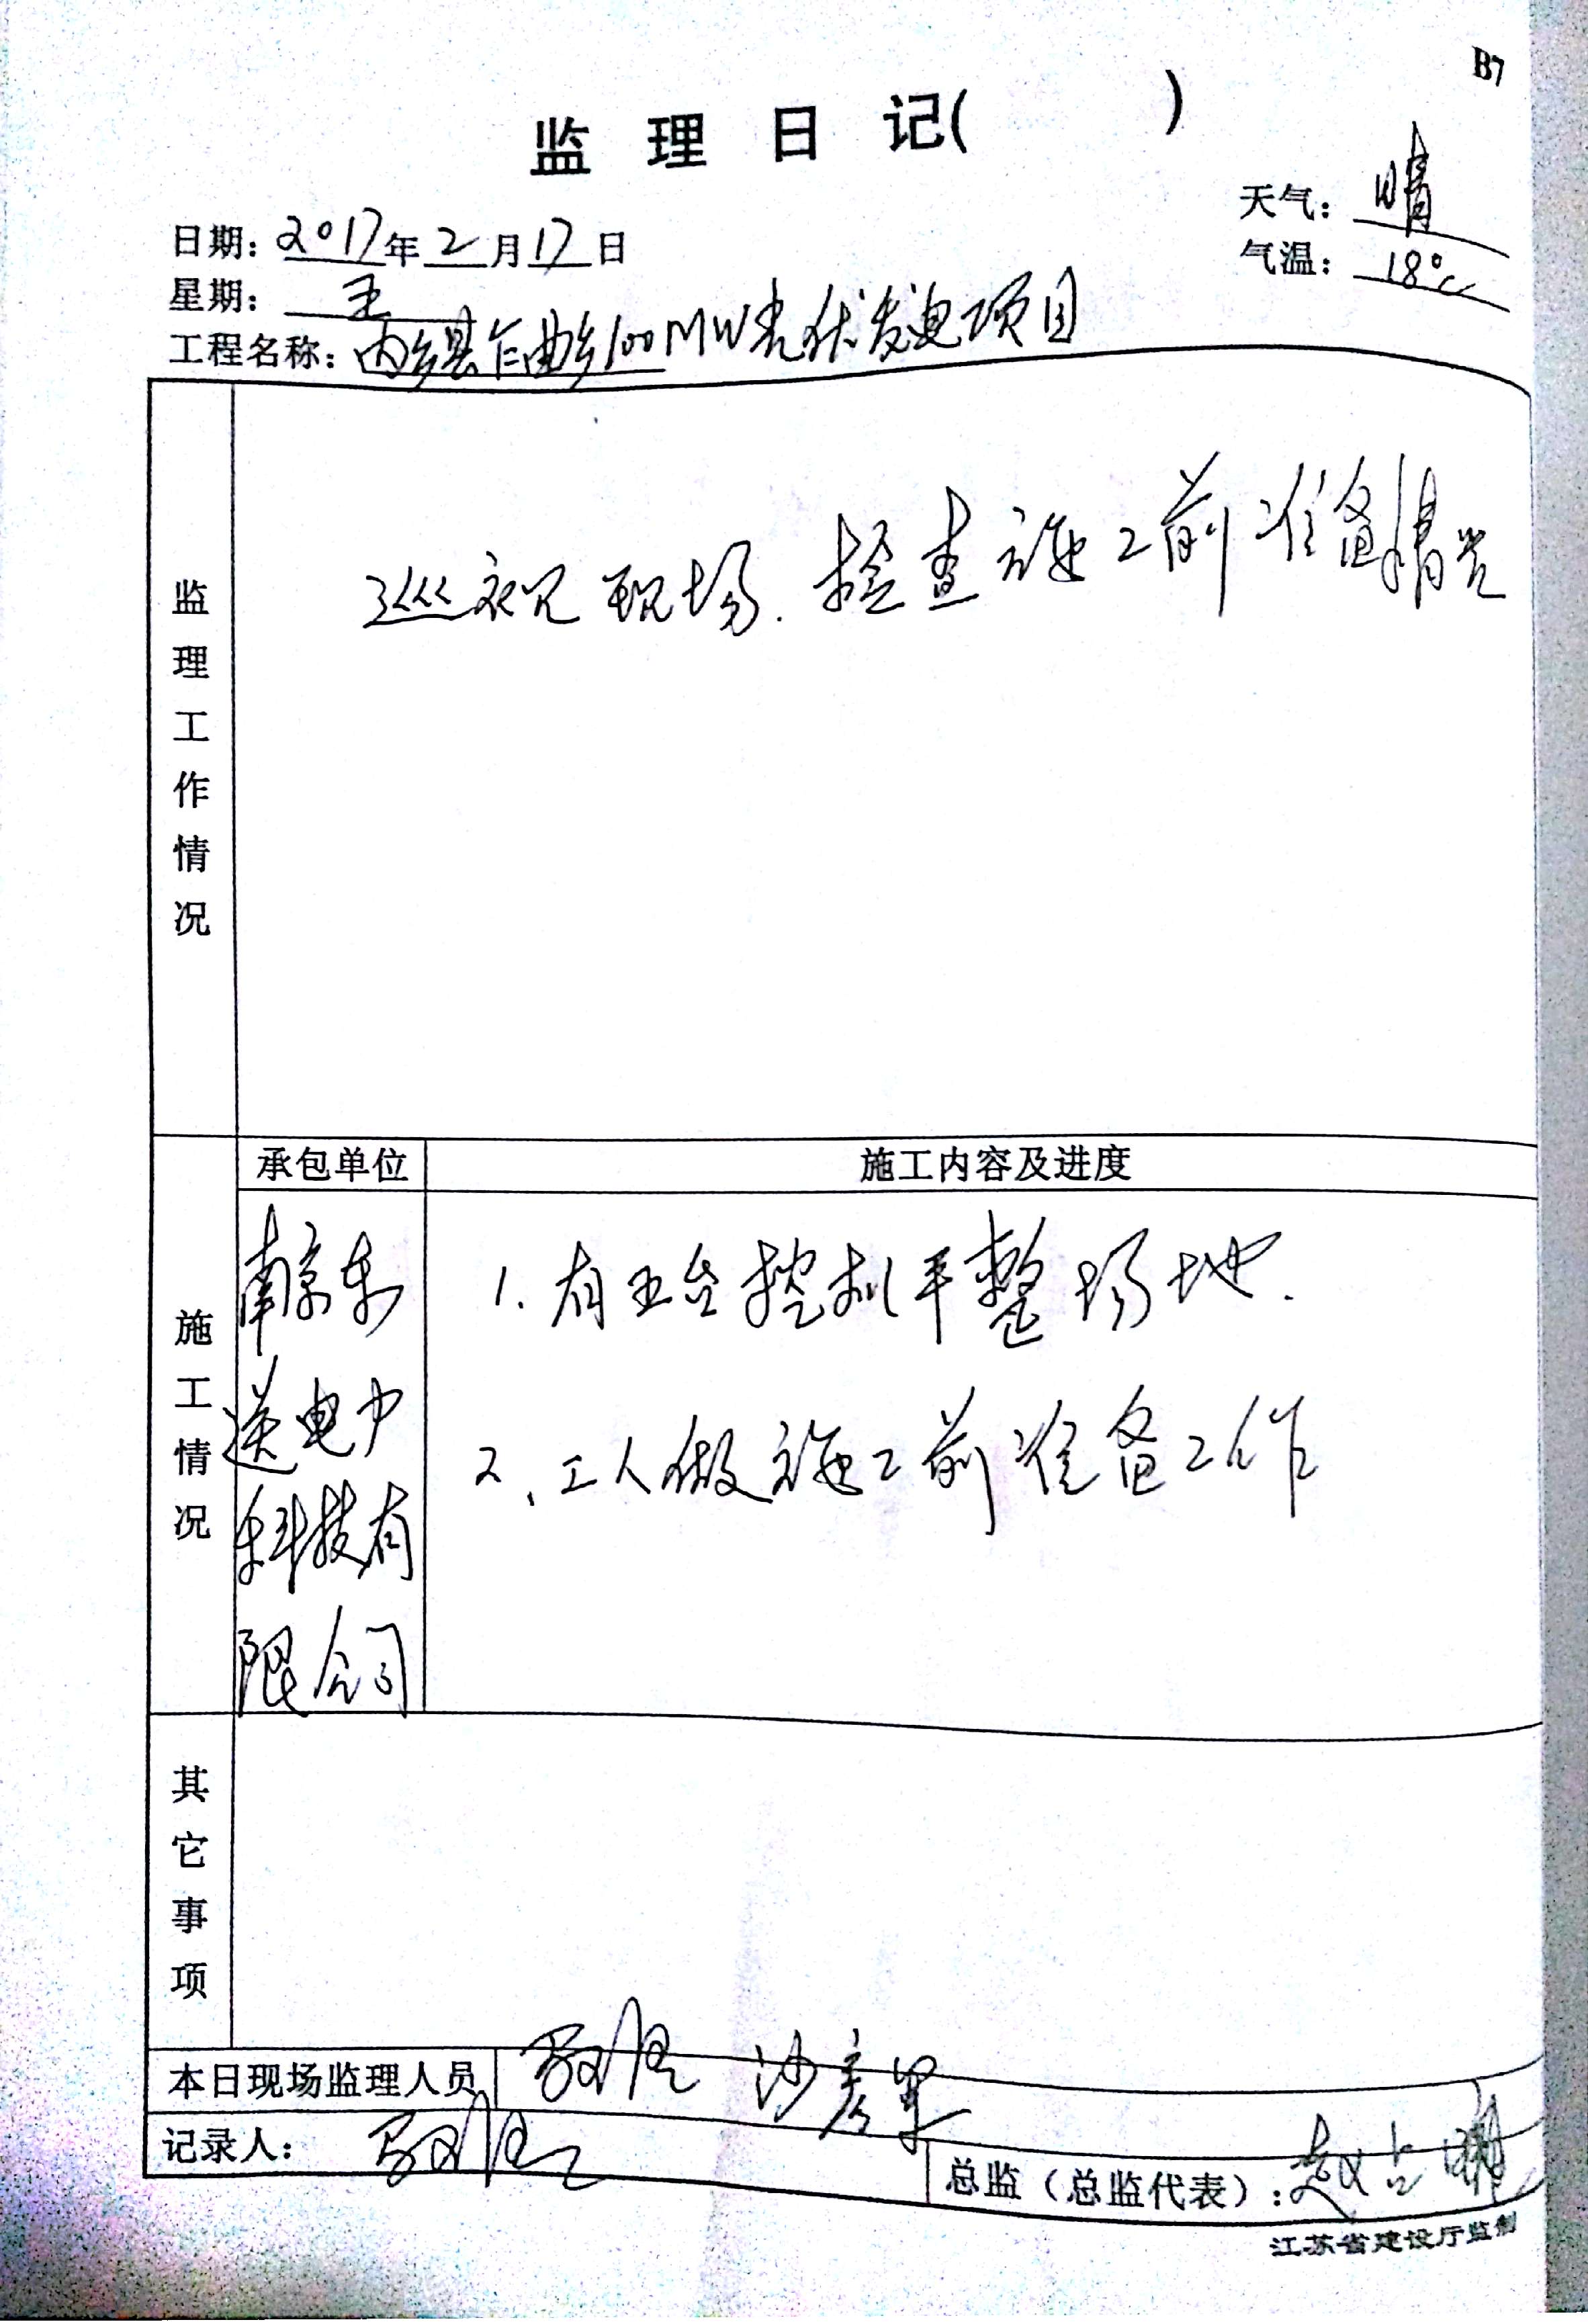 B7
监理日记( )
天气：晴
日期：2017年2月17日
气温：18℃
星期：五
工程名称：内乡县乍曲乡100MW光伏发电项目
监理工作情况
巡视现场.检查施工前准备情况
承包单位
施工内容及进度
施工情况
南京东
送电力
科技有
限公司
1.有五台挖机平整场地.
2、工人做施工前准备工作
其它事项
本日现场监理人员
沙彦军
记录人：
总监（总监代表）：赵占
江苏省建设厅监制